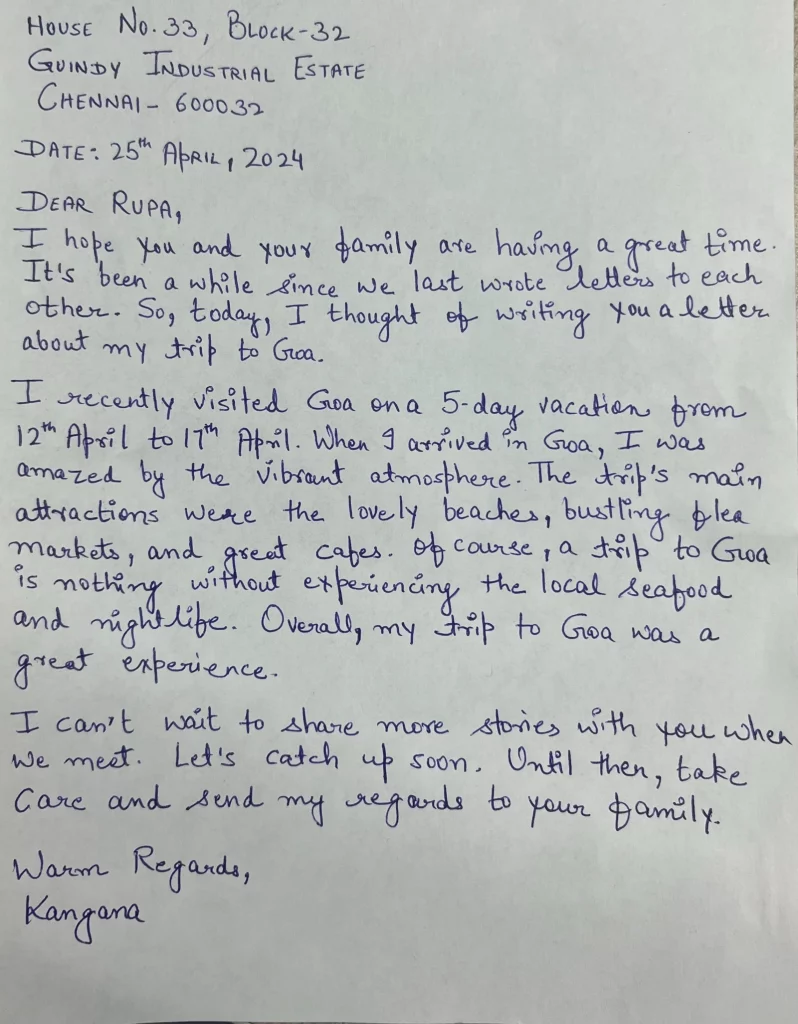 HOUSE NO. 33, BLOCK-32
GUINDY INDUSTRIAL ESTATE
CHENNAI - 600032
DATE: 25th APRIL, 2024
DEAR RUPA,
I hope you and your family are having a great time.
It's been a while since we last wrote letters to each
other. So, today, I thought of writing you a letter
about my trip to Goa.
I recently visited Goa on a 5-day vacation from
12th April to 17th April. When I arrived in Goa, I was
amazed by the vibrant atmosphere. The trip's main
attractions were the lovely beaches, bustling flea
markets, and great cafes. Of course, a trip to Goa
is nothing without experiencing the local seafood
and nightlife. Overall, my trip to Goa was a
great experience.
I can't wait to share more stories with you when
we meet. Let's catch up soon. Until then, take
care and send my regards to your family.
Warm Regards,
Kangana